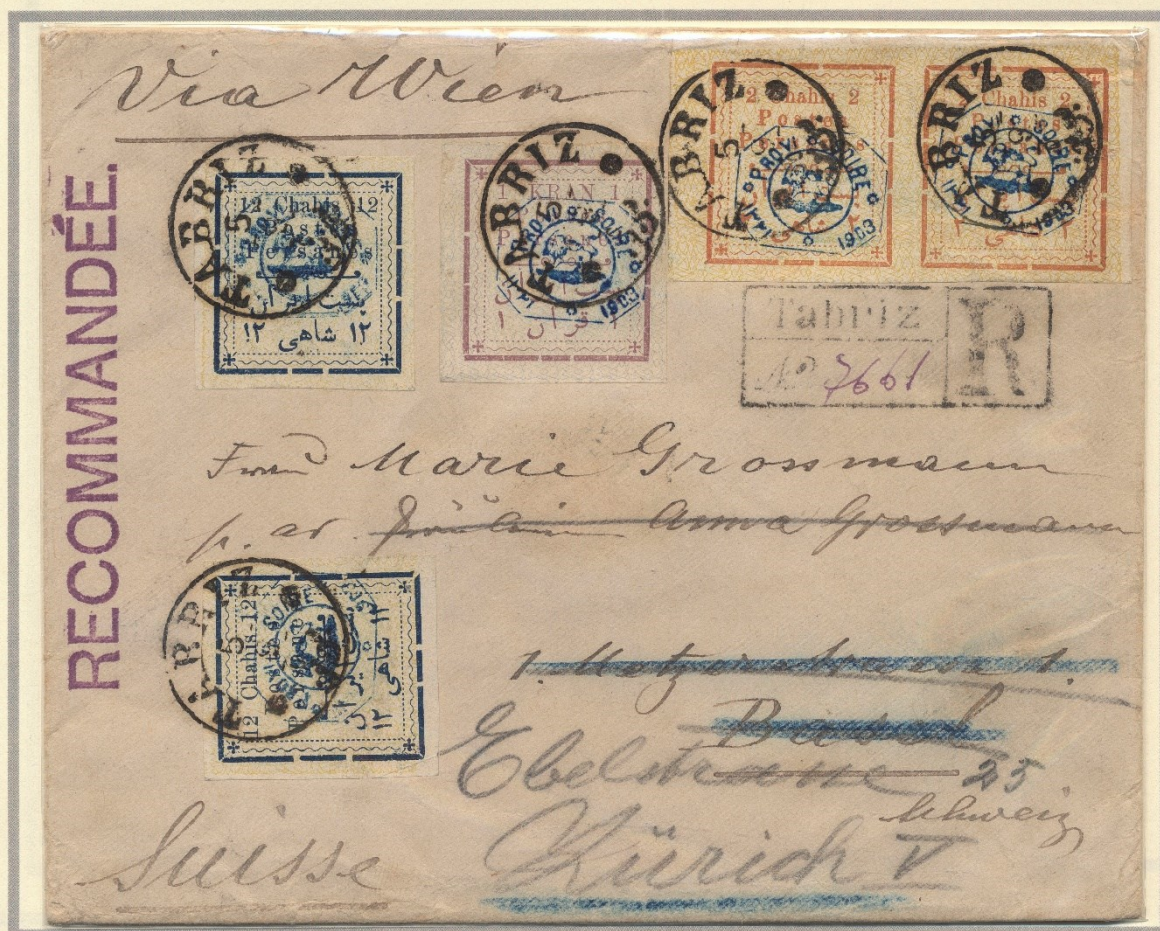 Via Wien
RECOMMANDÉE.
TABRIZ
5
12 Chahis 12
۱۲ شاهی ۱۲
TABRIZ
5
1 KRAN 1
PROVISOIRE
1903
۱ قران ۱
TABRIZ
5
2 Chahis 2
Postes
PROVISOIRE
1903
TABRIZ
Chahis 2
PROVISOIRE
1903
Tabriz R
No 7661
Frau Marie Grossmann
p. ad. Fräulein Anna Grossmann
TABRIZ
5
12 Chahis 12
۱۲ شاهی ۱۲
1. Metzerstrasse 1.
Basel
Ebelstrasse 25
Schweiz
Suisse Zürich V